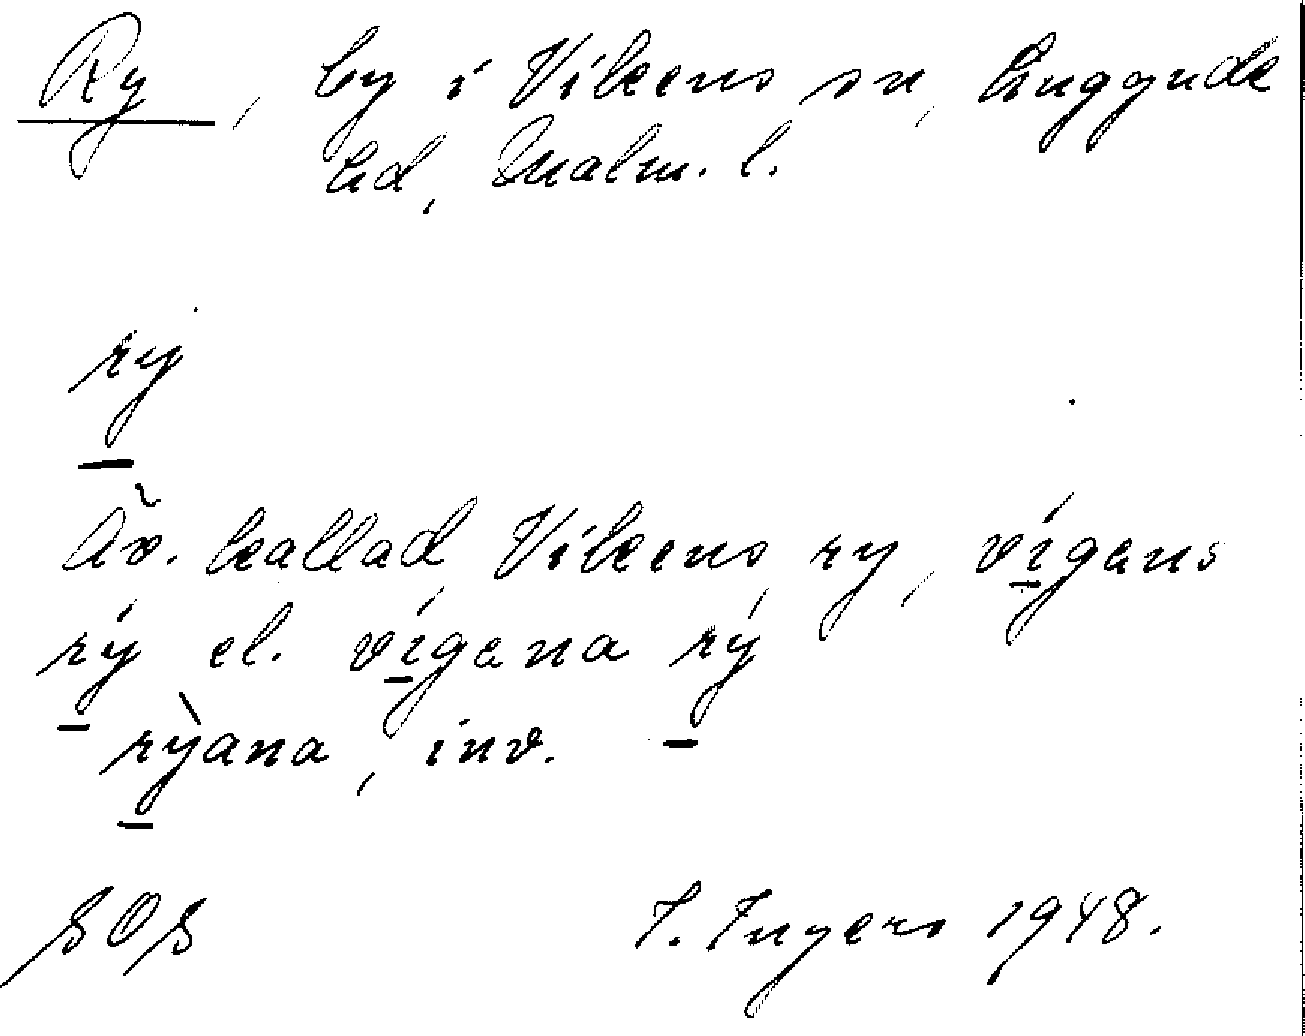 Ry, by i Vikens sn, Luggude
hd, Malm. l.
rý
Äv. kallad Vikens ry, vígans
rý el. vígana rý
rỳana, inv.
SOS I. Ingers 1948.